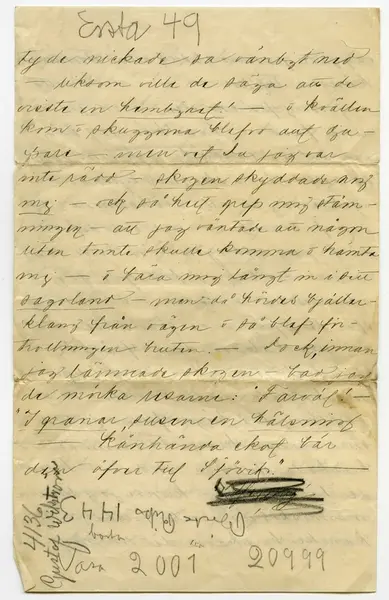 Ersta 49
tyde nickade så vänligt ned
– liksom ville de säga att de
visste en hemlighet! – o kvällen
kom o skuggorna blefvo allt dju-
pare – men vet Du jag var
inte rädd – skogen skyddade nog
mig – och så helt grep mig stäm-
ningen – att jag väntade att någon
liten tomte skulle komma o hämta
mig – o taga mig långt in i sitt
sagoland – men då hördes bjäller-
klang från vägen o så blef för-
trollningen bruten. – Dock, innan
jag lämnade skogen – bad jag
de mörka resarne: "Farväl! –
"I granar, susen en hälsning
– Kanhända ekot bär
den öfver till Sjövik."
4136
Gustof
144
Vasa 2001 20999